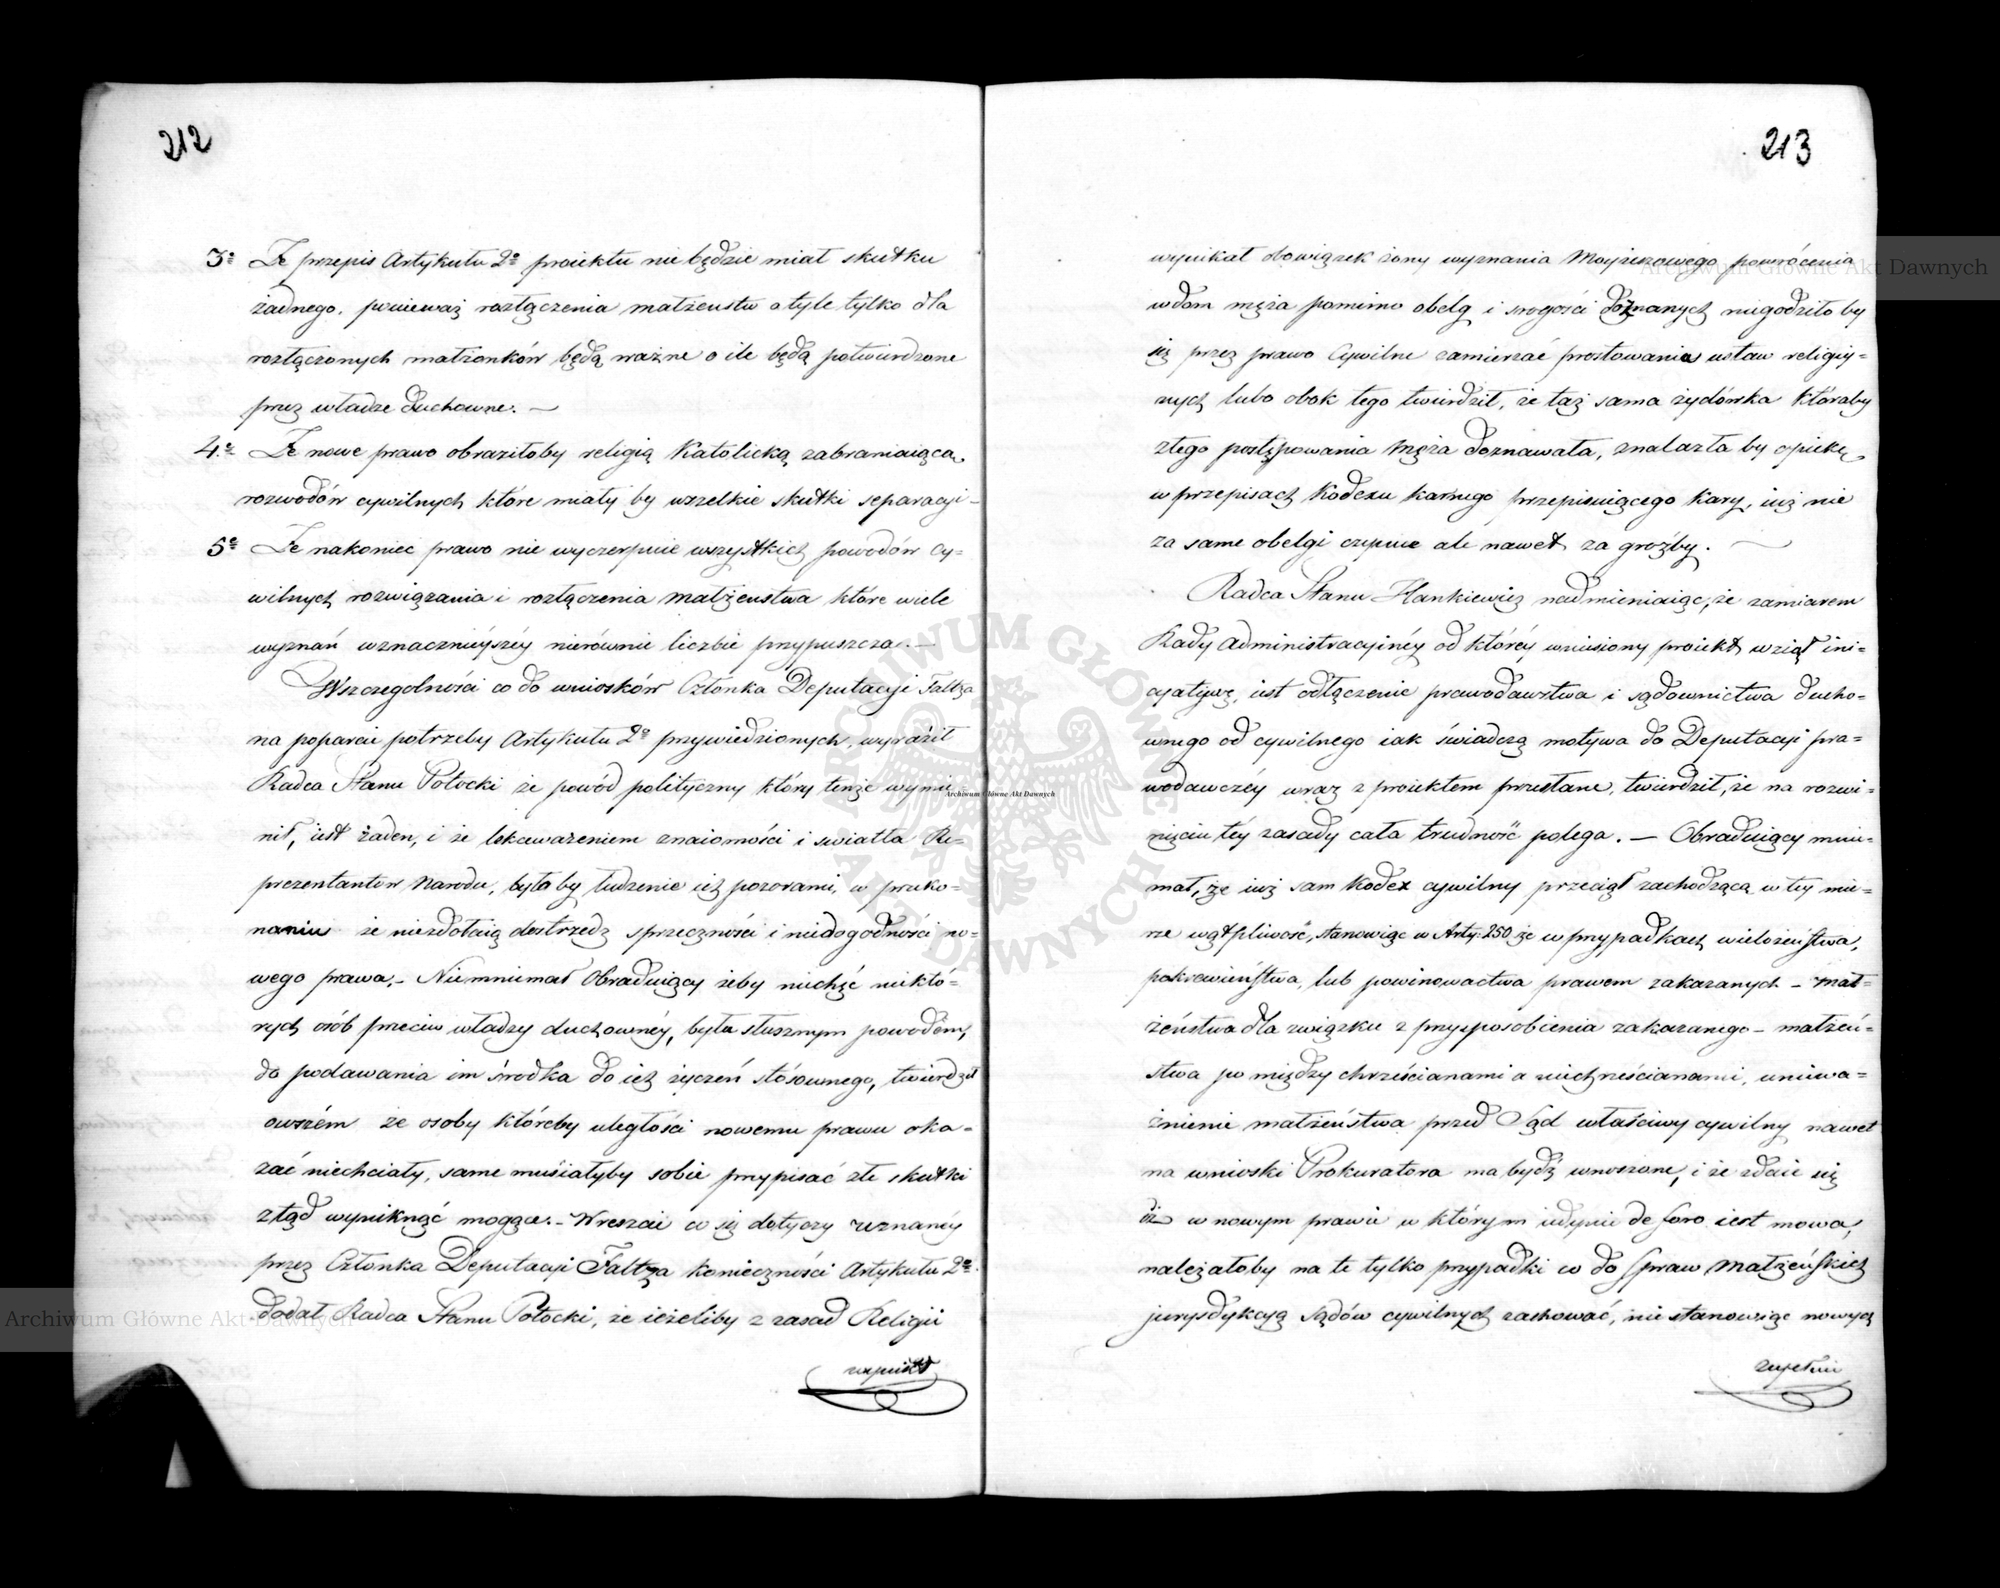 212
3o Że przepis Artykułu 2o proiektu nie będzie miał skutku
żadnego, ponieważ rozłączenia małżeństw o tyle tylko dla
rozłączonych małżonków będą ważne o ile będą potwierdzone
przez władze duchowne. —
4o Że nowe prawo obraziłoby religią Katolicką zabraniaiącą
rozwodów cywilnych które miały by wszelkie skutki separacyi -
5o Że nakoniec prawo nie wyczerpuie wszystkich powodów Cy-
wilnych rozwiązania i rozłączenia małżeństwa które wiele
wyznań w znacznieyszéy nierównie liczbie przypuszcza. —
W szczególności co do wniosków Członka Deputacyi Faltza
na poparcie potrzeby Artykułu 2o przywiedzionych, wyraził
Radca Stanu Potocki że powód polityczny który tenże wymie
nił, iest żaden, i że lekceważeniem znaiomości i światła Re-
prezentantów Narodu, byłoby łudzenie ich pozorami, w przeko-
naniu że niezdołaią dostrzedz sprzeczności i niedogodności no-
wego prawa. - Niemniemał Obraduiący żeby niechęć niektó-
rych osób przeciw władzy duchownéy, była słusznym powodem,
do podawania im środka do ich życzeń stósownego, twierdził
owszém że osoby któreby uległości nowemu prawu oka-
zać niechciały, same musiałyby sobie przypisać złe skutki
ztąd wyniknąć mogące. - Wreszcie co się dotyczy uznanéy
przez Członka Deputacyi Faltza konieczności Artykułu 2o
dodał Radca Stanu Potocki, że ieżeliby z zasad Religii
wynikał
213
wynikał obowiązek żony wyznania Moyżeszowego powrócenia
w dom męża pomimo obelg i srogości doznanych niegodziło by
się przez prawo Cywilne zamierzać prostowania ustaw religiy-
nych lubo obok tego twierdził, że taż sama żydówka któraby
złego postępowania męża doznawała, znalazła by opiekę
w przepisach Kodexu karnego przepisuiącego kary, iuż nie
za same obelgi czynne ale nawet za groźby. —
Radca Stanu Hankiewicz nadmieniaiąc, że zamiarem
Rady Administracyinéy od któréy wniesiony proiekt wziął ini-
cyatywę, iest odłączenie prawodawstwa i sądownictwa ducho-
wnego od cywilnego iak świadczą motywa do Deputacyi pra-
wodawczéy wraz z proiektem przesłane, twierdził, że na rozwi-
nięciu téy zasady cała trudność polega. — Obraduiący mnie-
mał, że iuż sam Kodex cywilny przeciął zachodzącą w tey mie-
rze wątpliwość, stanowiąc w Arty: 250 że w przypadkach wielożeństwa,
pokrewieństwa, lub powinowactwa prawem zakazanych - mał-
żeństwa dla związku z przysposobienia zakazanego - małżeń-
stwa pomiędzy chrześcianami a niechrześcianami, unieważ-
żnienie małżeństwa przed Sąd właściwy cywilny nawet
na wnioski Prokuratora ma bydź wnoszone, i że zdaie się
iż w nowym prawie w którym iedynie de foro iest mowa,
należałoby na te tylko przypadki co do spraw Małżeńskich
jurysdykcyą sądów cywilnych zachować, nie stanowiąc nowych
zupełnie
Archiwum Główne Akt Dawnych
Archiwum Główne Akt Dawnych
Archiwum Główne Akt Dawnych
ARCHIWUM GŁÓWNE AKT DAWNYCH